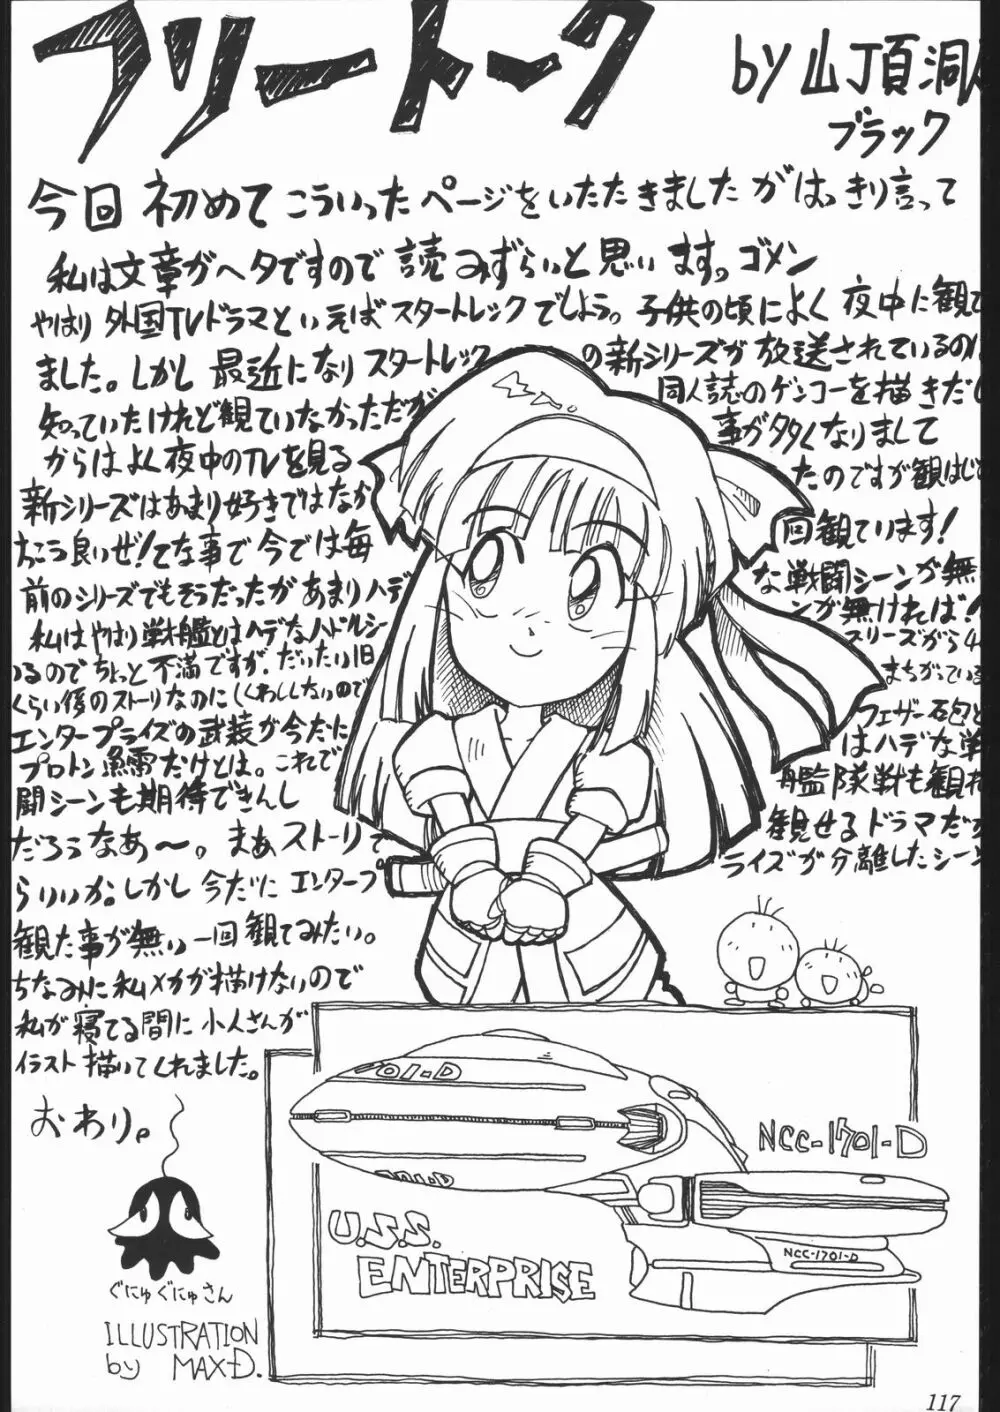 フリートーク
by 山丁頁洞
ブラック
今回 初めて こういった ページを いただきましたが はっきり言って
私は文章がヘタですので 読みずらいと思います。ゴメン
やはり 外国TVドラマといえば スタートレックでしょう。子供の頃によく 夜中に観て
ました。しかし 最近になり スタートレック の新シリーズが 放送されているのは
知っていたけれど観ていなかっただが 同人誌のゲンコーを描きだし
からはよく夜中のTVを見る 事が多くなりまして
新シリーズはあまり好きではなか たのですが観はじ
っこう良いぜ!てな事で今では毎 回観ています!
前のシリーズでもそうだったがあまりハデ な戦闘シーンが無
私はやはり戦艦とはハデなバトルシー ンが無ければ!
いるのでちょっと不満ですが、だいたい旧 スリーズから4
くらい後のストーリなのに(くわしくしらないので まちがっている
エンタープライズの武装が今だに フェザー砲と
プロトン魚雷だけとは。これで はハデな戦
闘シーンも期待できんし 艦隊戦も観れ
だろうなあ〜。まあストーリで 観せるドラマだか
らいいか。しかし 今だに エンタープ ライズが分離したシーン
観た事が無い 一回観てみたい。
ちなみに私メカが描けないので
私が寝てる間に 小人さんが
イラスト描いてくれました。
おわり。
01-D
NCC-1701-D
1701-D
U.S.S.
ENTERPRISE
NCC-1701-D
ぐにゅぐにゅさん
ILLUSTRATION
by MAX-D.
117